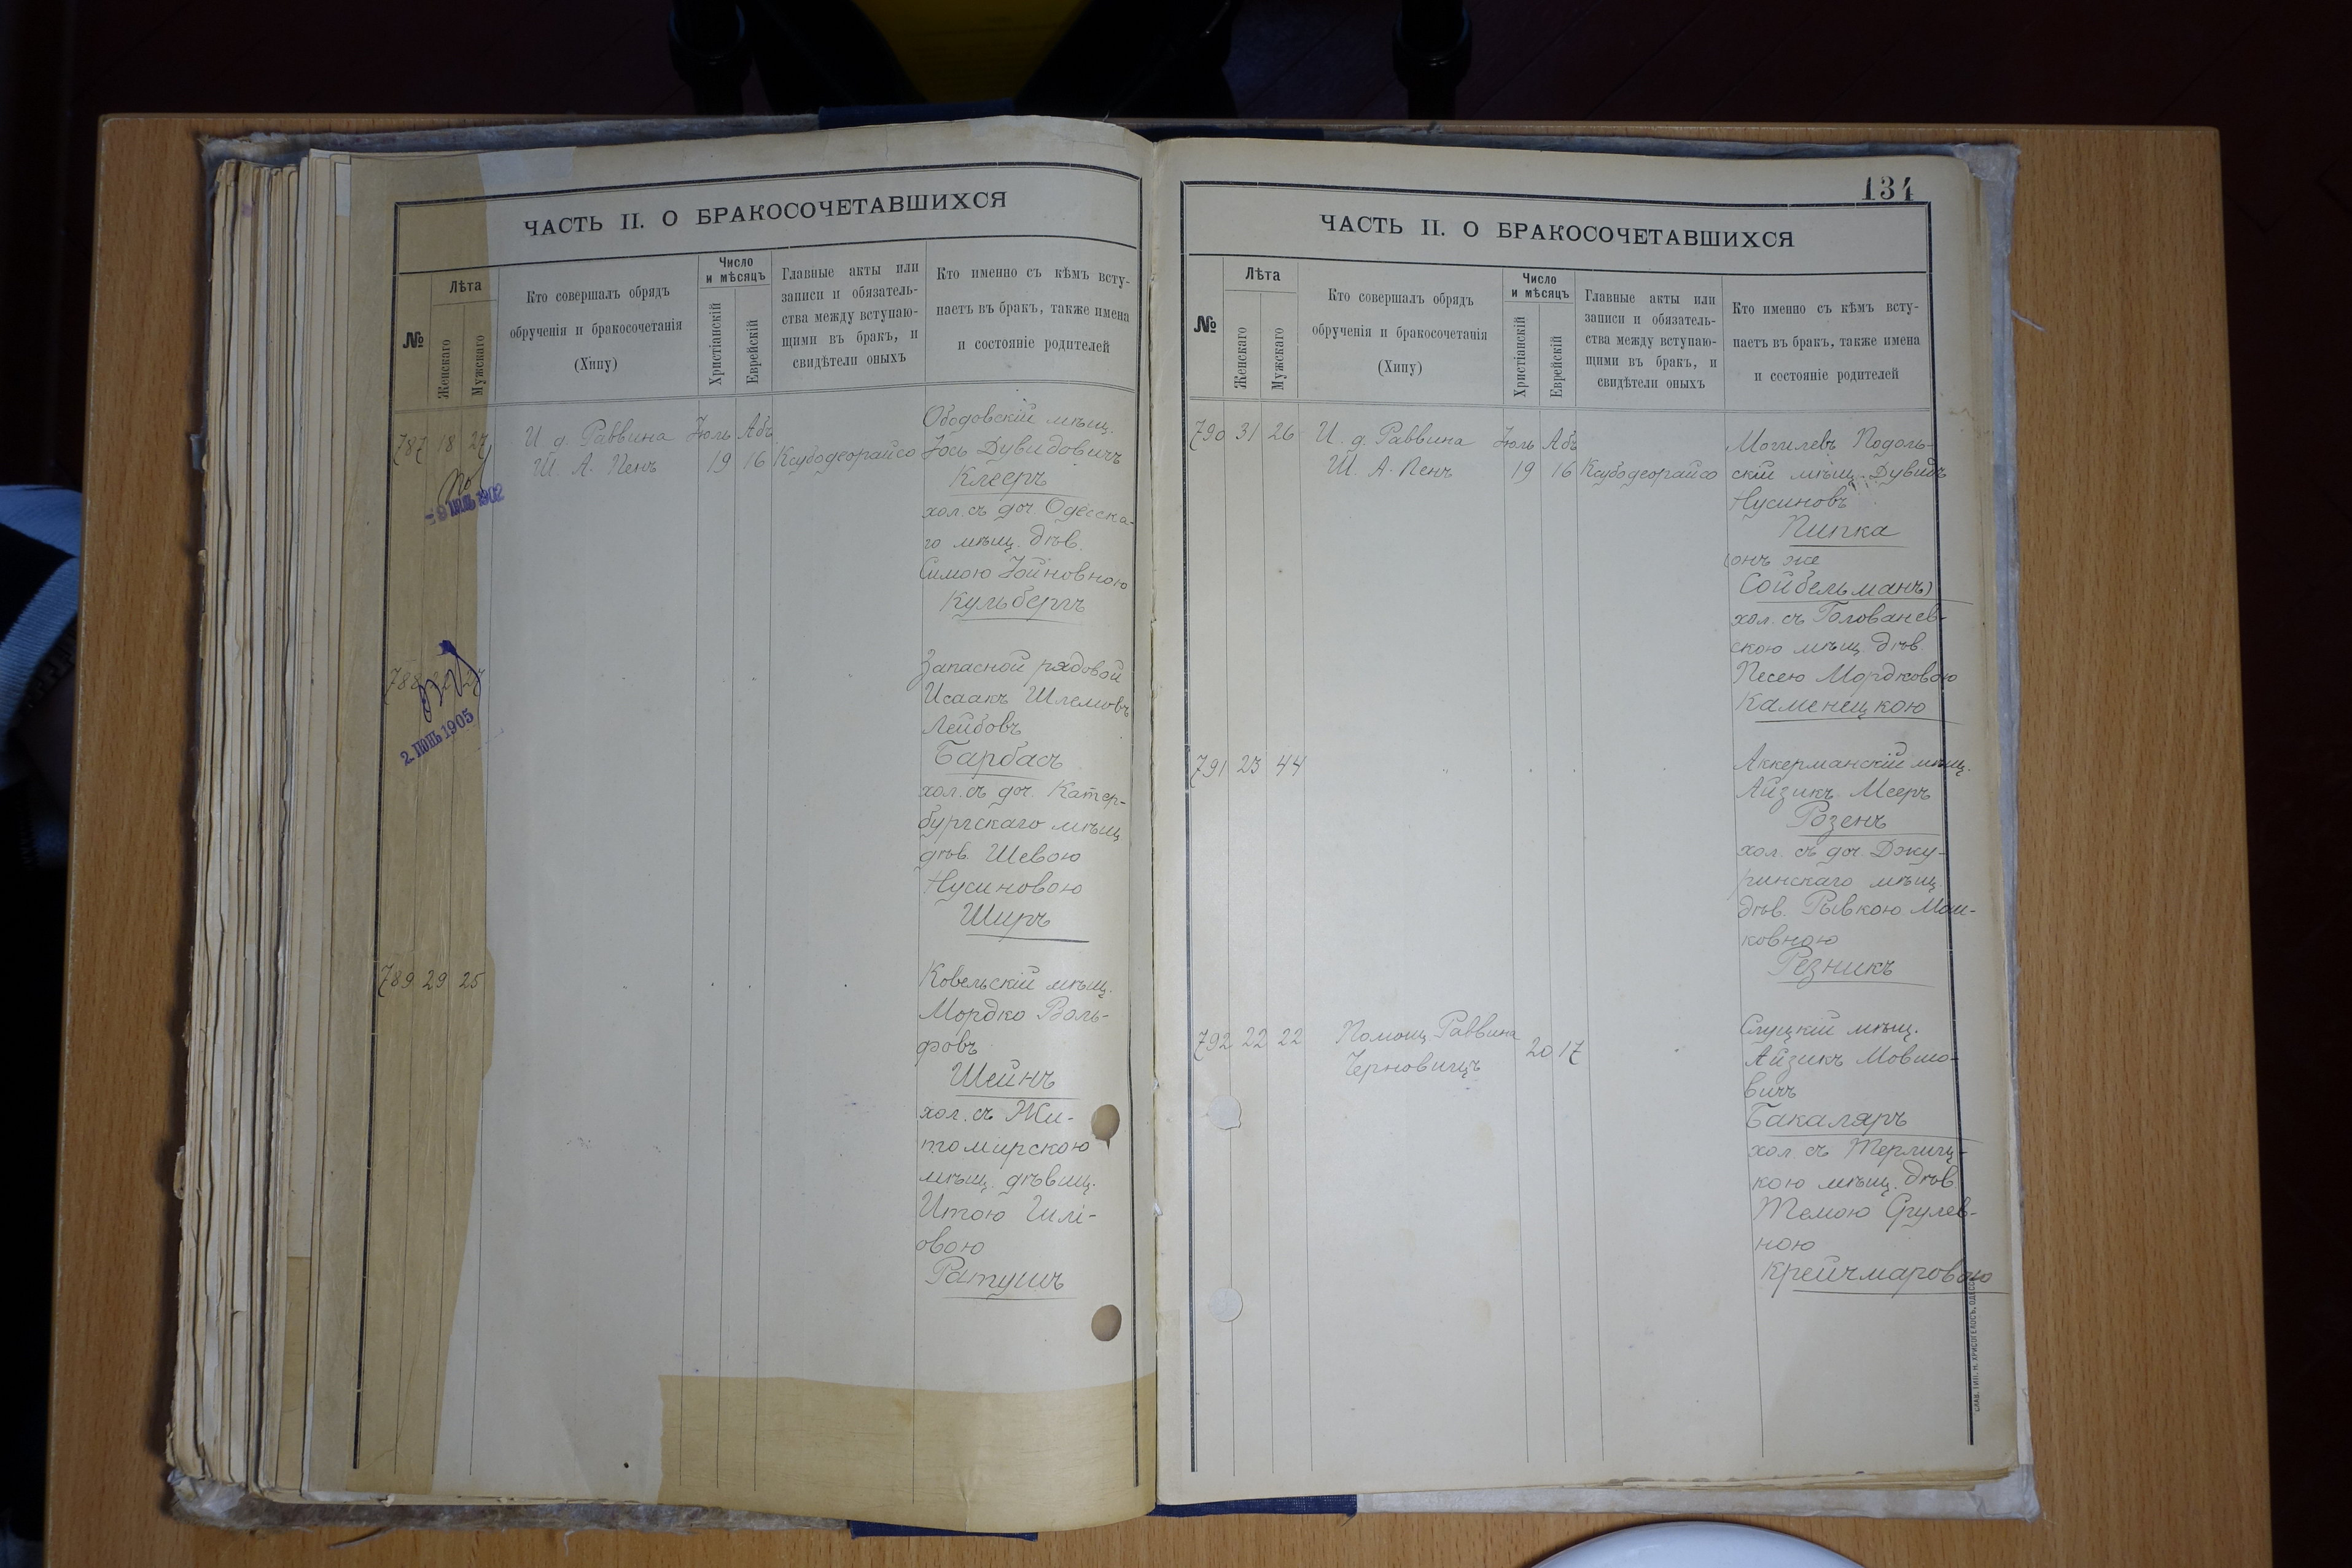 ЧАСТЬ II. О БРАКОСОЧЕТАВШИХСЯ
№
Лѣта
Женскаго
Мужскаго
Кто совершалъ обрядъ
обрученія и бракосочетанія
(Хипу)
Число
и мѣсяцъ
Христіанскій
Еврейскій
Главные акты или
записи и обязатель-
ства между вступаю-
щими въ бракъ, и
свидѣтели оныхъ
Кто именно съ кѣмъ всту-
паетъ въ бракъ, также имена
и состояніе родителей
787 18 27
И. д. Раввина
Ш. А. Пенъ
Іюль Абъ
19 16
Ксубодеорайсо
Ободовскій мѣщ.
Іось Дувидовичъ
Клееръ
хол. съ доч. Одесска-
го мѣщ. дѣв.
Симою Іойновною
Кульбергъ
1902
788
2. ІЮНЬ 1905
Запасной рядовой
Исаакъ Шлемовъ
Лейбовъ
Барбасъ
хол. съ доч. Катер-
бургскаго мѣщ
дѣв. Шевою
Нусиновою
Ширъ
789 29 25
Ковельскій мѣщ.
Мордко Воль-
фовъ
Шейнъ
хол. съ Жи-
томирскою
мѣщ. дѣвиц.
Итою
овою
Ратушъ
134
ЧАСТЬ II. О БРАКОСОЧЕТАВШИХСЯ
№
Лѣта
Женскаго
Мужскаго
Кто совершалъ обрядъ
обрученія и бракосочетанія
(Хипу)
Число
и мѣсяцъ
Христіанскій
Еврейскій
Главные акты или
записи и обязатель-
ства между вступаю-
щими въ бракъ, и
свидѣтели оныхъ
Кто именно съ кѣмъ всту-
паетъ въ бракъ, также имена
и состояніе родителей
790 31 26
И. д. Раввина
Ш. А. Пенъ
Іюль Абъ
19 16
Ксубодеорайсо
Могилевъ Подоль-
скій мѣщ. Дувидъ
Нусиновъ
Пипка
(онъ же
Сойбельманъ)
хол. съ Голованев-
скою мѣщ. дѣв.
Песею Мордковою
Каменецкою
791 23 44
Аккерманскій мѣщ.
Айзикъ Мееръ
Розенъ
хол. съ доч. Джу-
ринскаго мѣщ.
дѣв. Рывкою Мош-
ковною
Резникъ
792 22 22
Помощ. Раввина
Черновицъ
20 17
Слуцкій мѣщ.
Айзикъ Мовшо-
вичъ
Бакаляръ
хол. съ Терлиц-
кою мѣщ. дѣв
Темою Срулев-
ною
Крейчмаровою
СЛАВ. ТИП. Н. ХРИСОГЕЛОСЪ, ОДЕССА